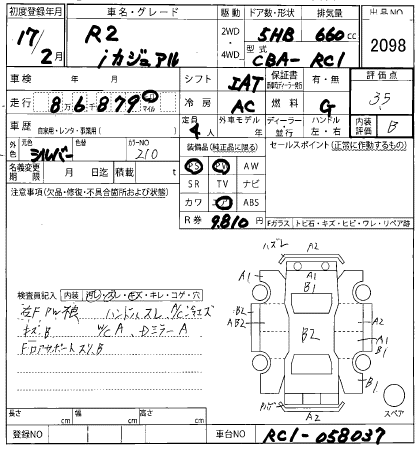 初度登録年月 車名・グレード 駆動 ドア数・形状 排気量 出品NO
17/2月 R2 iカジュアル 2WD・4WD 5HB 660cc 2098
型式 CBA-RC1
車検 年 月 シフト IAT 保証書 有・無 評価点
走行 8万6千879 マイル 冷房 AC 燃料 G 3.5
車歴 自家用・レンタ・事業用( ) 定員 4人 外車モデル 年 ディーラー・並行 ハンドル 左・右 内装評価 B
外色 元色 シルバー 色替 カラーNO 210 装備品 (純正品に限る) セールスポイント (正常に作動するもの)
名義変更期限 月 日迄 積載 t
PS PW AW
SR TV ナビ
カワ ABS
注意事項 (欠品・修復・不具合箇所および状態)
R券 9810円 Fガラス トビ石・キズ・ヒビ・ワレ・リペア跡
検査員記入 内装 コゲ・穴
ハンドルスレ
キズB W/C A DミラーA
FロアサポートスリB
ハズレ A2
A1 A1 B1 A1
B2 AB2 B2 A2
A1 B1
B1
A2
スペア
長さ cm 幅 cm 高さ cm
登録NO 車台NO RC1-058037